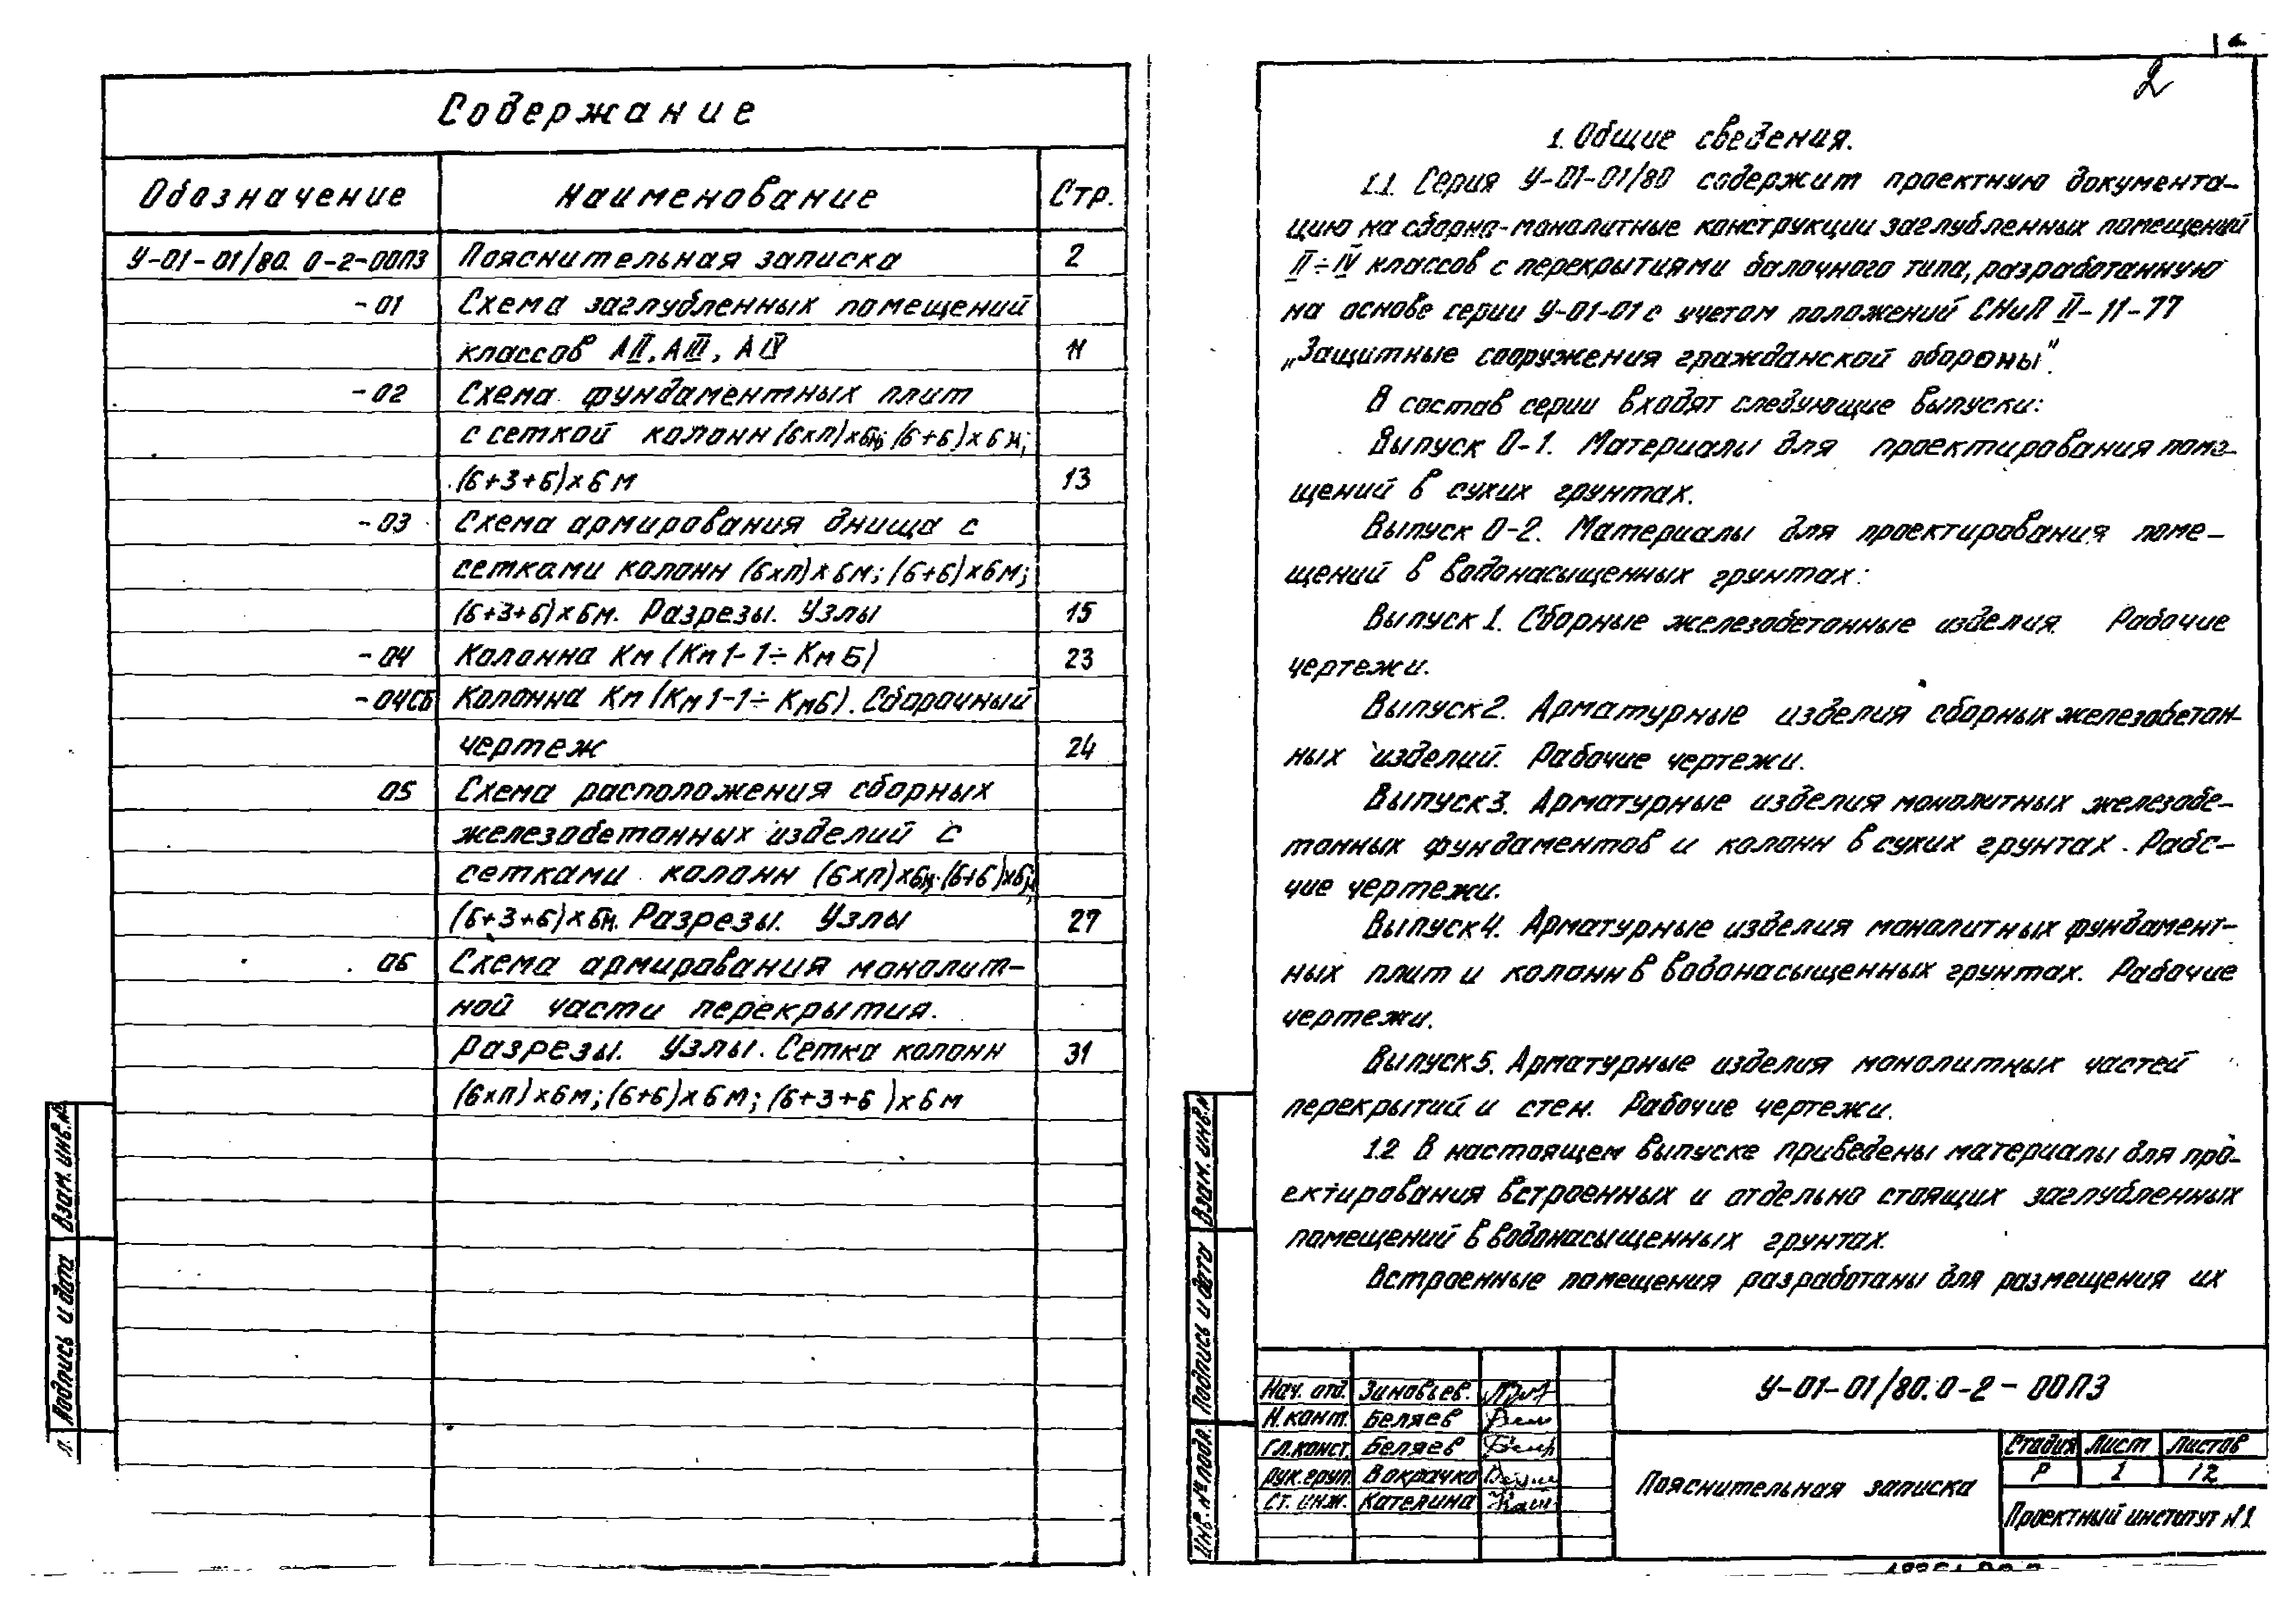 Содержание
Обозначение Наименование Стр.
У-01-01/80. 0-2-00ПЗ Пояснительная записка 2
-01 Схема заглубленных помещений
классов АII, АIII, АIV 11
-02 Схема фундаментных плит
с сеткой колонн (6хп)х6м; (6+6)х6м;
(6+3+6)х6м 13
-03 Схема армирования днища с
сетками колонн (6хп)х6м; (6+6)х6м;
(6+3+6)х6м. Разрезы. Узлы 15
-04 Колонна Км (Км1-1÷Км6) 23
-04СБ Колонна Км (Км1-1÷Км6). Сборочный
чертеж 24
05 Схема расположения сборных
железобетонных изделий с
сетками колонн (6хп)х6м; (6+6)х6м;
(6+3+6)х6м. Разрезы. Узлы 27
06 Схема армирования монолит-
ной части перекрытия.
Разрезы. Узлы. Сетка колонн 31
(6хп)х6м; (6+6)х6м; (6+3+6)х6м
Взам. инв.№
Подпись и дата
2
1. Общие сведения.
1.1. Серия У-01-01/80 содержит проектную документа-
цию на сборно-монолитные конструкции заглубленных помещений
II÷IV классов с перекрытиями балочного типа, разработанную
на основе серии У-01-01 с учетом положений СНиП II-11-77
„Защитные сооружения гражданской обороны".
В состав серии входят следующие выпуски:
Выпуск 0-1. Материалы для проектирования поме-
щений в сухих грунтах.
Выпуск 0-2. Материалы для проектирования поме-
щений в водонасыщенных грунтах:
Выпуск 1. Сборные железобетонные изделия. Рабочие
чертежи.
Выпуск 2. Арматурные изделия сборных железобетон-
ных изделий. Рабочие чертежи.
Выпуск 3. Арматурные изделия монолитных железобе-
тонных фундаментов и колонн в сухих грунтах. Рабо-
чие чертежи.
Выпуск 4. Арматурные изделия монолитных фундамент-
ных плит и колонн в водонасыщенных грунтах. Рабочие
чертежи.
Выпуск 5. Арматурные изделия монолитных частей
перекрытий и стен. Рабочие чертежи.
1.2 В настоящем выпуске приведены материалы для про-
ектирования встроенных и отдельно стоящих заглубленных
помещений в водонасыщенных грунтах.
Встроенные помещения разработаны для размещения их
Взам. инв.№
Подпись и дата
Инв. № подл.
Нач. отд. Зиновьев
Н. конт. Беляев
Гл. конст. Беляев
Рук. груп. Вокрачко
Ст. инж. Кателина
У-01-01/80.0-2-00ПЗ
Пояснительная записка
Стадия Лист Листов
Р 1 12
Проектный институт №1